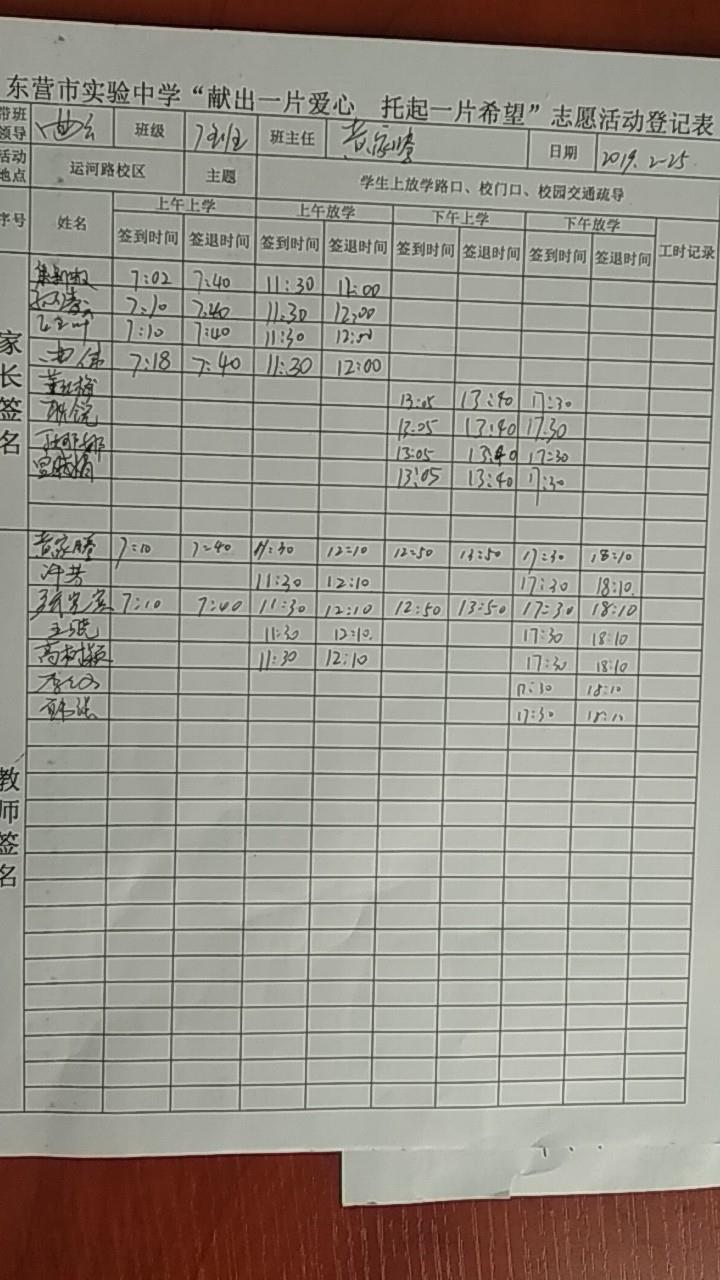 东营市实验中学“献出一片爱心 托起一片希望”志愿活动登记表
带班领导 班级 班主任 黄家腾 日期 2019.2-25
活动地点 运河路校区 主题 学生上放学路口、校门口、校园交通疏导
序号 姓名 上午上学 上午放学 下午上学 下午放学 工时记录
签到时间 签退时间 签到时间 签退时间 签到时间 签退时间 签到时间 签退时间
家长签名
7:02 7:40 11:30 12:00
7:10 7:40 11:30 12:00
7:10 7:40 11:30 12:00
7:18 7:40 11:30 12:00
13:05 13:40 17:30
13:05 13:40 17:30
13:05 13:40 17:30
13:05 13:40 17:30
教师签名
黄家腾 7:10 7:40 11:30 12:10 12:50 13:50 17:30 18:10
许芳 11:30 12:10. 17:30 18:10.
7:10 7:40 11:30 12:10 12:50 13:50 17:30 18:10
11:30 12:10. 17:30 18:10
高树颖 11:30 12:10 17:30 18:10
17:30 18:10
17:30 18:10